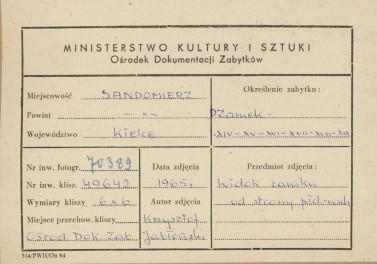 MINISTERSTWO KULTURY I SZTUKI
Ośrodek Dokumentacji Zabytków
Miejscowość SANDOMIERZ
Określenie zabytku:
Powiat — „ —
Zamek-
Województwo Kielce
XIV-XV-XVI-XVII-XVIII-XIX
Nr inw. fotogr. 70389
Nr inw. klisz. 49642
Wymiary kliszy 6x6
Miejsce przechow. kliszy
Ośrod Dok Zab
Data zdjęcia
1965.
Autor zdjęcia
Krzysztof
Jabłoński
Przedmiot zdjęcia:
Widok zamku
od strony płd-zach
314/PWH/Oa 64